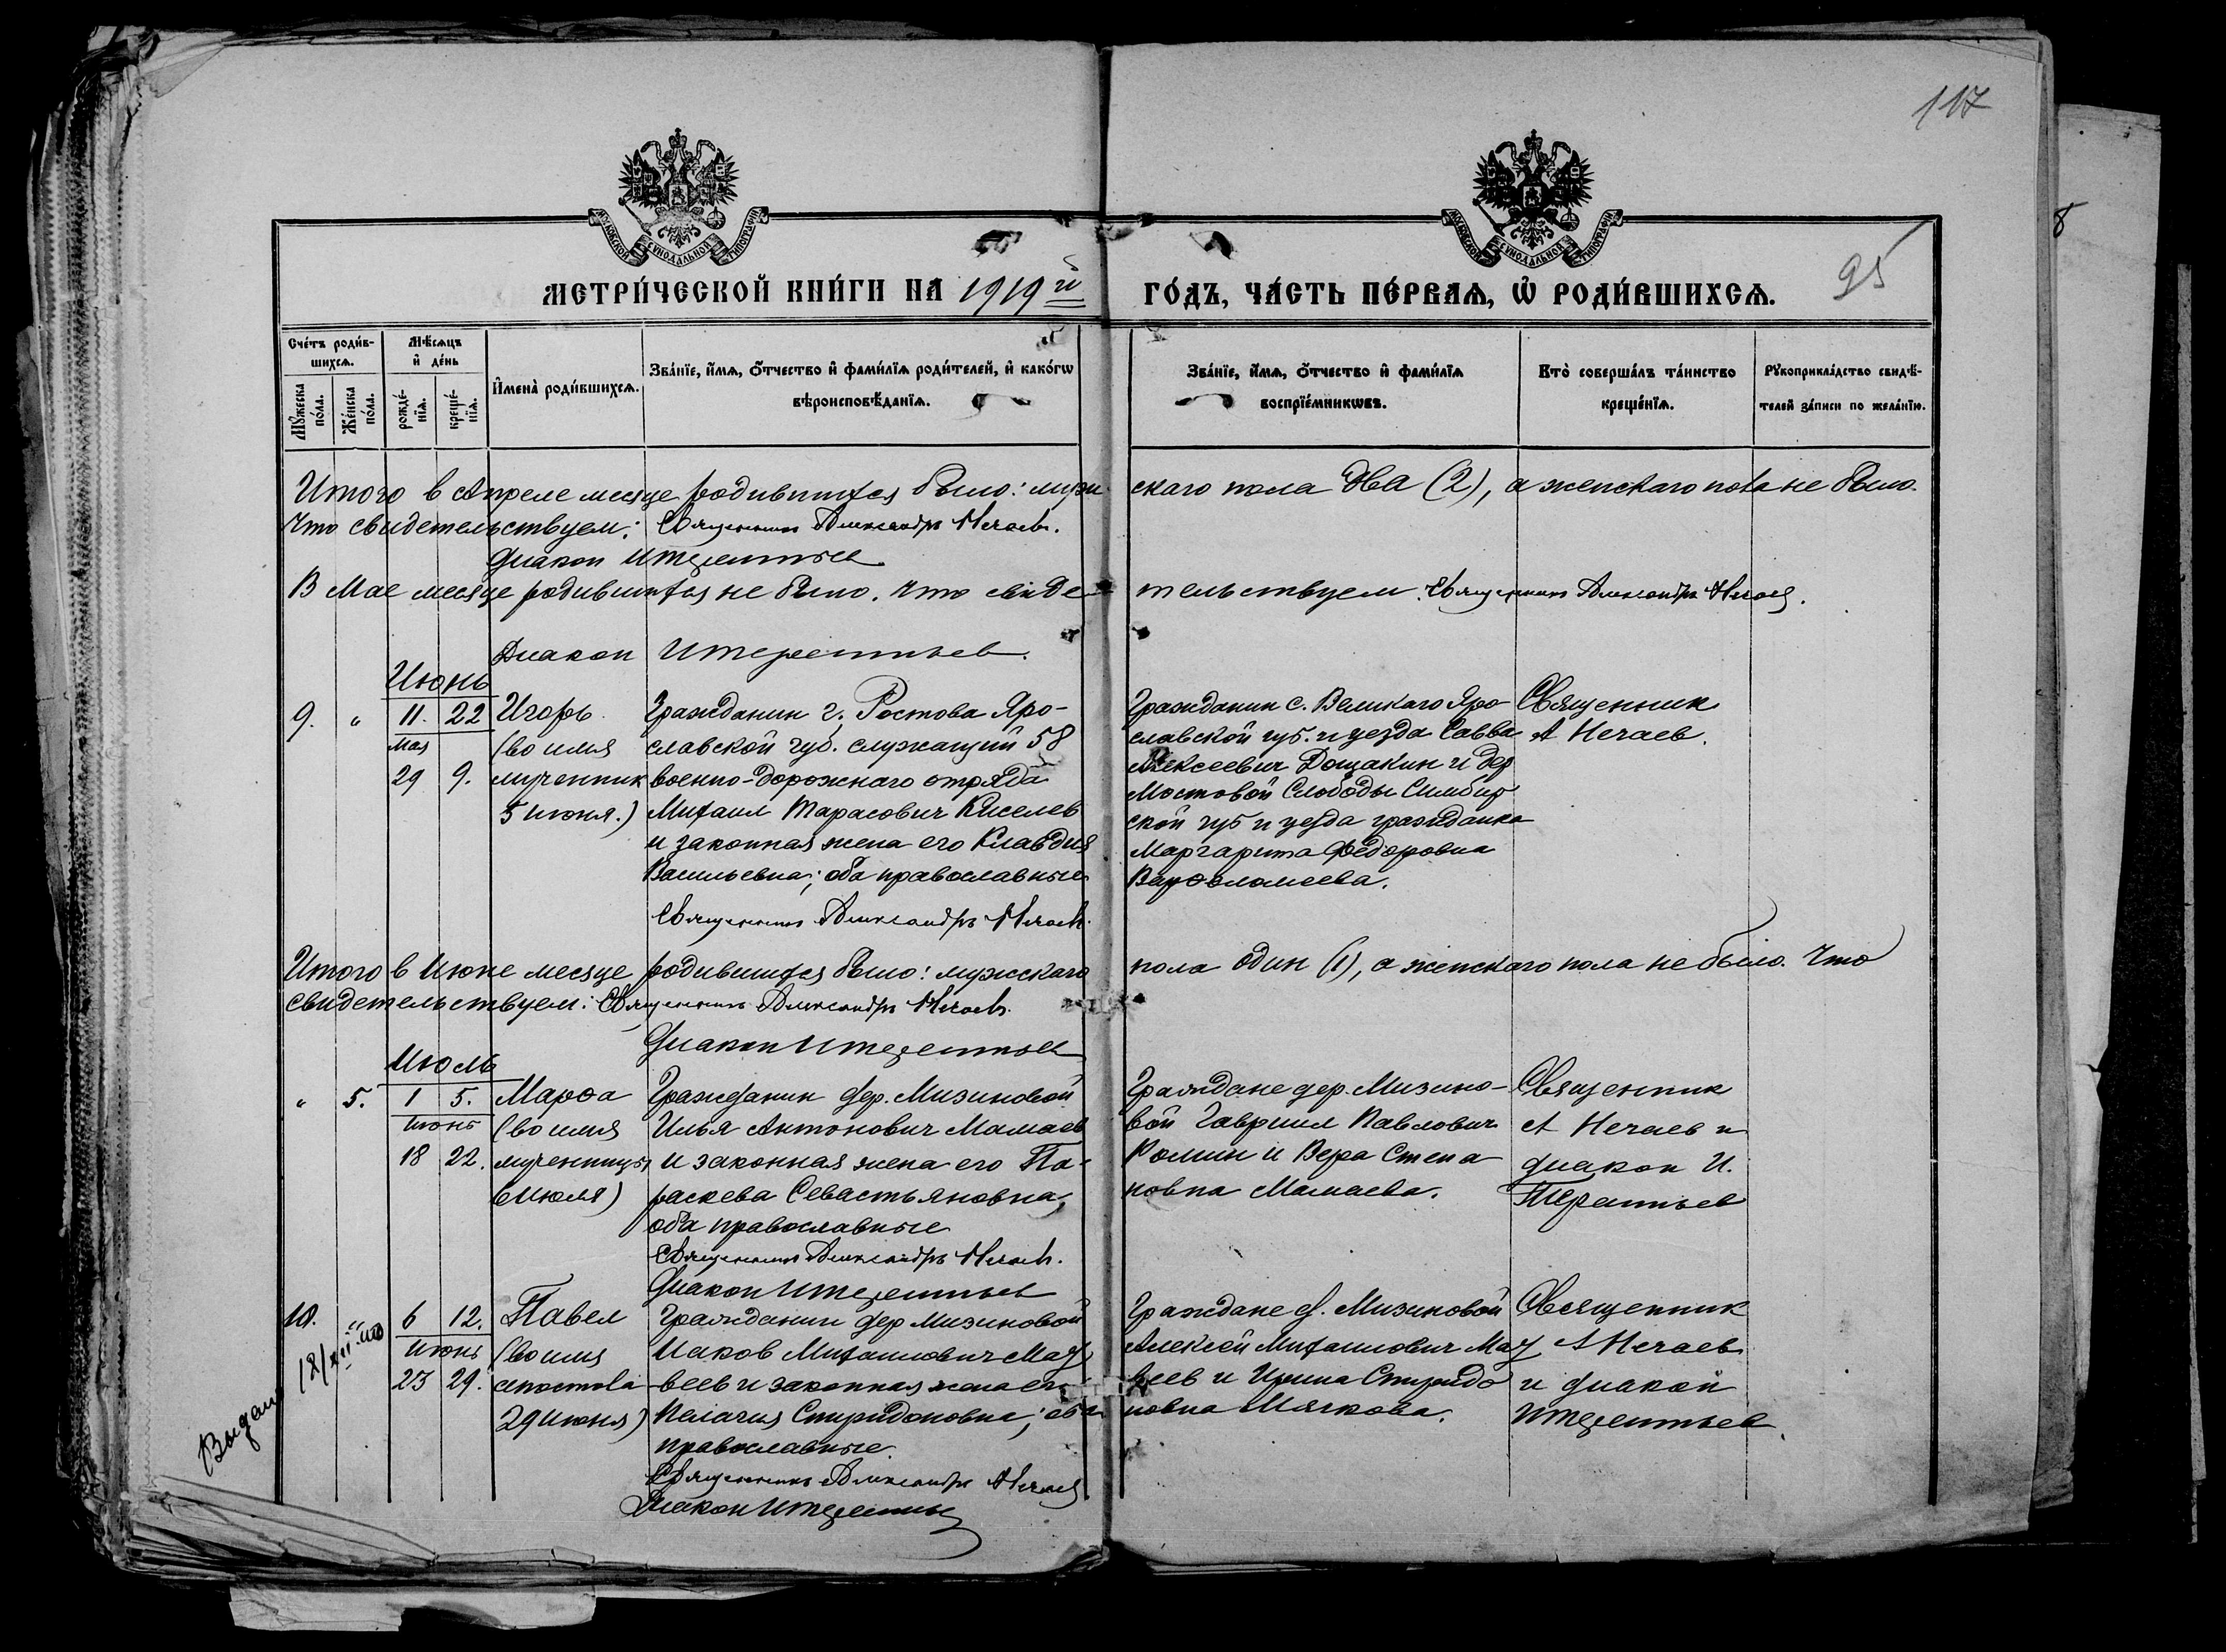 117
МОСКОВСКОЙ СѴНОДАЛЬНОЙ ТИПОГРАФІИ
МОСКОВСКОЙ СѴНОДАЛЬНОЙ ТИПОГРАФІИ
МЕТРИ́ЧЕСКОЙ КНИ́ГИ НА 1919й
ГО́ДЪ, ЧА́СТЬ ПЕ́РВАѦ, Ѡ҆ РОДИ́ВШИХСѦ.
95
Сче́тъ роди́в-
шихсѧ.
Мꙋ́жеска по́ла.
Же́нска по́ла.
Мѣ́сѧцъ
и҆ де́нь
рожде́-
нїѧ.
креще́-
нїѧ.
И҆мена̀ роди́вшихсѧ.
Зва́нїе, и҆́мѧ, ѻ҆́тчество и҆ фами́лїѧ роди́телей, и҆ како́гѡ
вѣроисповѣ́данїѧ.
Зва́нїе, и҆́мѧ, ѻ҆́тчество и҆ фами́лїѧ
воспрїе́мникѡвъ.
Кто̀ соверша́лъ та́инство
креще́нїѧ.
Рꙋкоприкла́дство свидѣ́-
телей за́писи по жела́нїю.
Итого в Апреле месяце родившихся было: муж-
скаго пола два (2), а женскаго пола не было.
Что свидетельствуем: Священникъ Александръ Нечаевъ.
Диакон И Терентьев
В Мае месяце родившихся не было. Что свиде-
тельствуем. Священникъ Александръ Нечаев.
Диакон И Терентьев.
Июнь
9. " 11. 22 Игорь
Мая (во имя
29 9. мученник
5 июня.)
Гражданин г. Ростова Яро-
славской губ. служащий 58
военно-дорожнаго отряда
Михаил Тарасович Киселев
и законная жена его Клавдия
Васильевна; оба православные
Священникъ Александръ Нечаевъ.
Гражданин с. Великаго Яро-
славской губ. и уезда Савва
Алексеевич Дощакин и дер
Мостовой Слободы Симбир
ской губ и уезда гражданка
Маргарита Федоровна
Варфоломеева.
Священник
А Нечаев.
Итого в Июне месяце родившихся было: мужскаго
пола один (1), а женскаго пола не было. Что
свидетельствуем: Священникъ Александръ Нечаевъ.
Диакон И Терентьев
Июль
" 5. 1 5. Марѳа
Июнь (во имя
18 22. мученницы
6 Июля)
Гражданин дер. Мизиновой
Илья Антонович Мамаев
и законная жена его Па-
раскева Севастьяновна,
оба православные
Священникъ Александръ Нечаевъ.
Диакон И Терентьев
Граждане дер. Мизино-
вой Гавриил Павлович
Ромин и Вера Степа
новна Мамаева.
Священник
А Нечаев и
диакон И.
Терентьев
10. 6 12. Павел
Июнь (во имя
23 29. апостола
29 Июня)
Выдан
Гражданин дер Мизиновой
Иаков Михаилович Мат
веев и законная жена его
Пелагия Спиридоновна; оба
православные.
Священникъ Александръ Нечаев
Диакон И Терентьев
Граждане д. Мизиновой
Алексей Михаилович Мат
веев и Ирина Спиридо
новна Мячкова.
Священник
А Нечаев
и диакон
И Терентьев.
8